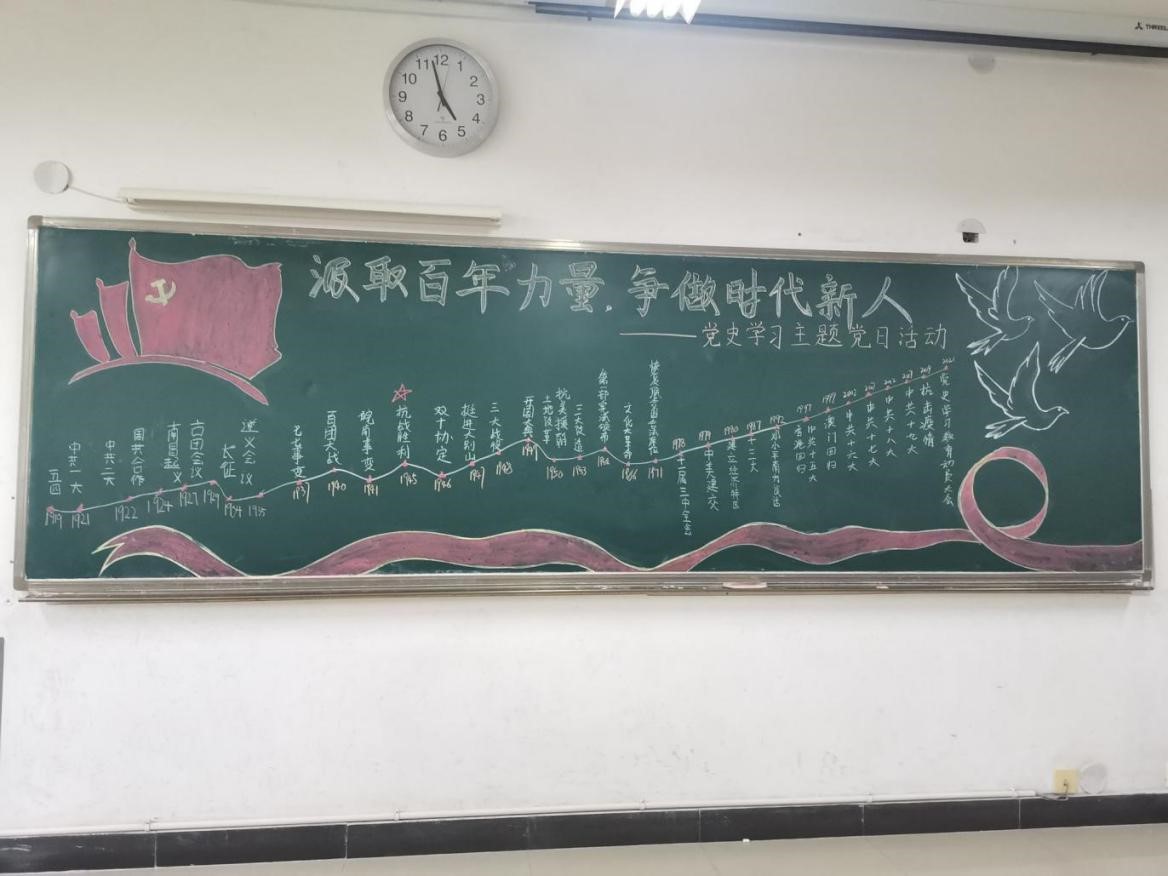 汲取百年力量，争做时代新人
——党史学习主题党日活动
五四
1919
中共一大
1921
中共二大
1922
国共合作
1924
南昌起义
1927
古田会议
1929
长征
1934
遵义会议
1935
七七事变
1937
百团大战
1940
皖南事变
1941
抗战胜利
1945
双十协定
1946
挺进大别山
1947
三大战役
1948
开国大典
1949
土地改革
抗美援朝
1950
三大改造
1953
第一部宪法颁布
1954
文化大革命
1966
1971
1978
十一届三中全会
1979
中美建交
1980
建立经济特区
1987
十三大
1992
邓小平南方谈话
1997
香港回归
中共十五大
1999
澳门回归
2002
中共十六大
中共十七大
2012
中共十八大
2017
中共十九大
2019
抗击疫情
2021
党史学习教育动员大会
12
1
2
3
4
5
6
7
8
9
10
11